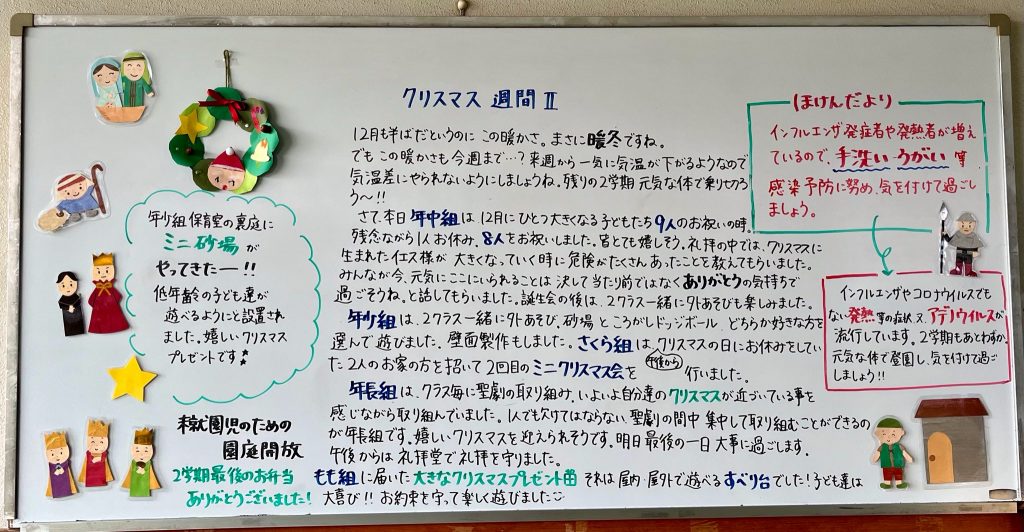 クリスマス 週間 Ⅱ
12月も半ばだというのに この暖かさ。まさに暖冬ですね。
でも この暖かさも 今週まで…?来週から 一気に気温が 下がるようなので
気温差にやられないようにしましょうね。残りの2学期 元気な体で 乗り切ろ
う〜!!
さて、本日 年中組は、12月に ひとつ 大きくなる 子どもたち 9人の お祝いの時。
残念ながら 1人 お休み。8人を お祝いしました。皆とても 嬉しそう。礼拝の中では、クリスマスに
生まれた イエス様が 大きくなっていく時に 危険が たくさん あったことを 教えてもらいました。
みんなが今、元気に ここに いられることは 決して 当たり前ではなく ありがとうの気持ちで
過ごそうね。と話してもらいました。誕生会の後は、2クラス一緒に 外あそびも 楽しみました。
年少組は、2クラス一緒に 外あそび。砂場 ところがしドッジボール どちらか 好きな方を
選んで 遊びました。壁面製作もしました。さくら組は、クリスマスの日に お休みをしてい
た 2人の お家の方を 招いて 2回目の ミニクリスマス会を 午後から 行いました。
年長組は、クラス毎に 聖劇の取り組み。いよいよ 自分達の クリスマスが 近づいている事を
感じながら 取り組んでいました。1人でも欠けてはならない 聖劇の間中 集中して 取り組むことができるの
が 年長組です。嬉しい クリスマスを 迎えられそうです。明日 最後の一日 大事に過ごします。
午後からは 礼拝堂で 礼拝を 守りました。
もも組に 届いた 大きな クリスマスプレゼント それは 屋内・屋外で遊べる すべり台でした!子ども達は
大喜び!! お約束を守って 楽しく 遊びました
年少組 保育室の裏庭に
ミニ砂場が
やってきたー!!
低年齢の子ども達が
遊べるようにと設置され
ました。嬉しい クリスマス
プレゼントです
未就園児のための
園庭開放
2学期最後のお弁当
ありがとうございました!
ほけんだより
インフルエンザ発症者や発熱者が増え
ているので、手洗い・うがい 等
感染予防に努め、気を付けて過ごし
ましょう。
インフルエンザやコロナウイルスでも
ない 発熱 等の症状 又、アデノウイルスが
流行しています。2学期もあとわずか。
元気な体で登園し、気を付けて過ご
しましょう!!